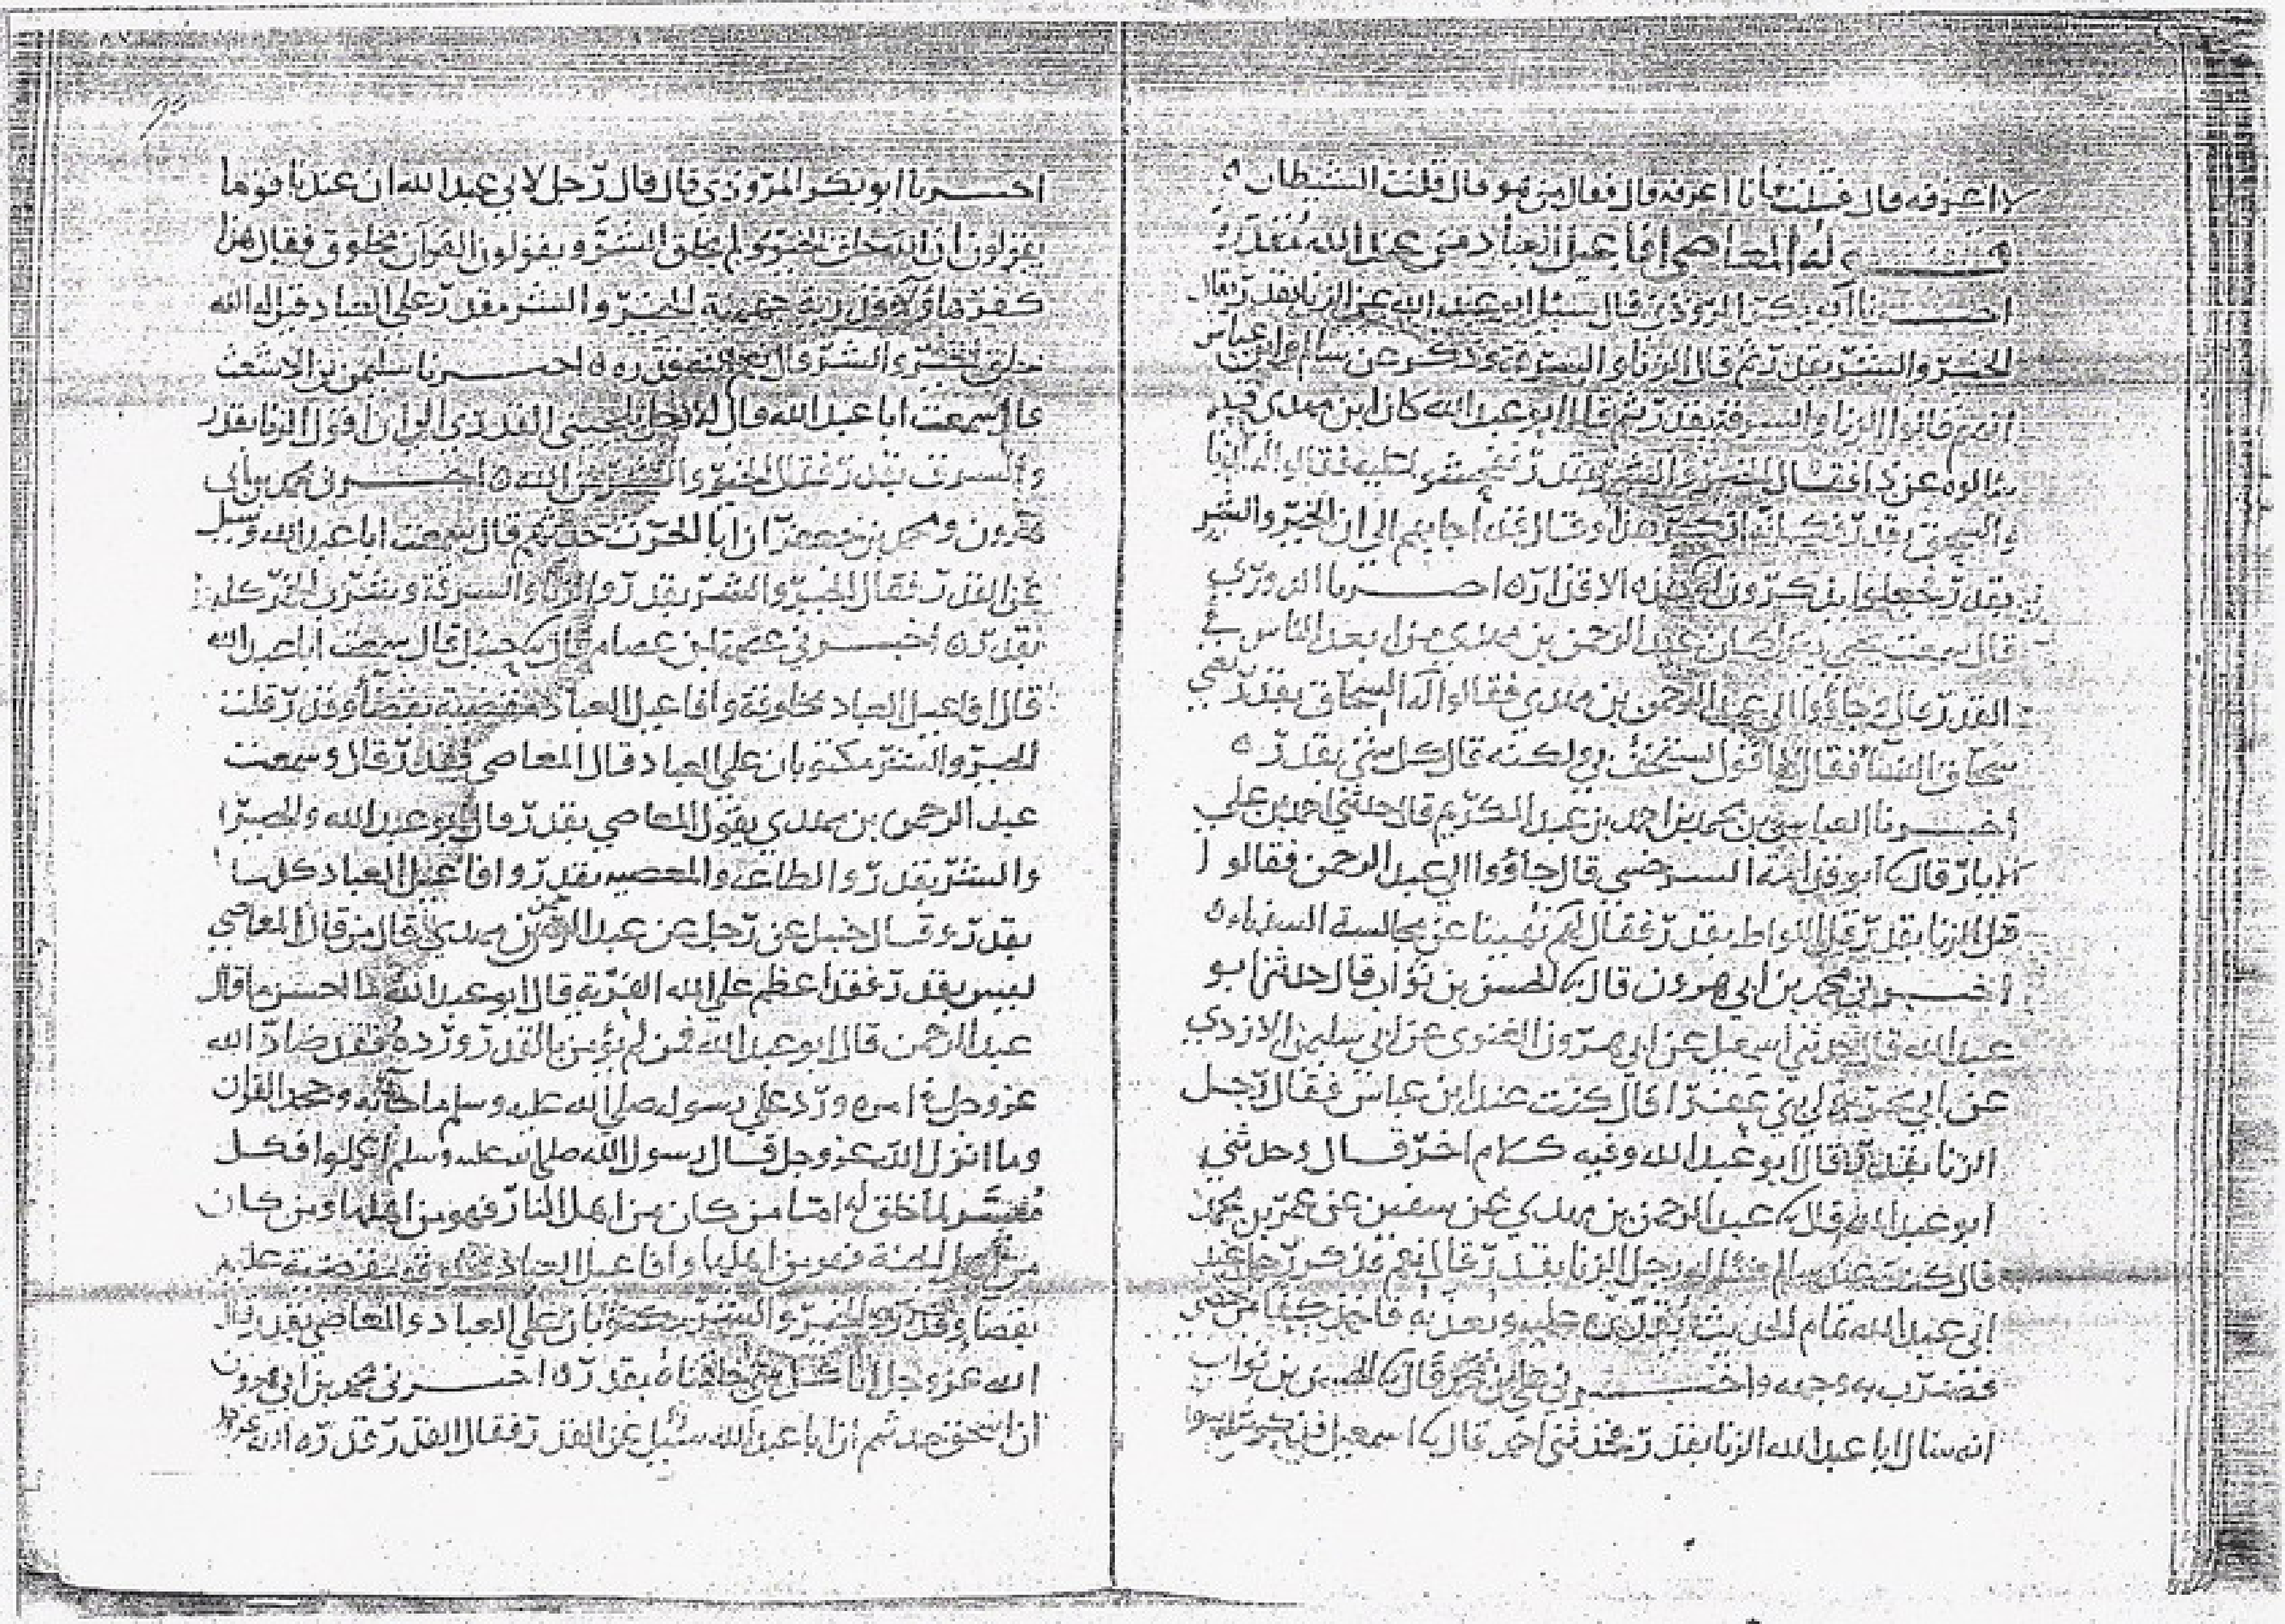 لا اعرفه قال فقلت انا اعرفه قال فقال من هو قال قلت الشيطان ه
قوله المعاصي افاعيل العباد من عند الله مقدرة
اخبرنا ابو بكر المروذي قال سئل ابو عبد الله عن الزنا بقدر فقال
الخير والشر بقدر ثم قال الزنا والسرقة وذكر عن سالم وابن عباس
انهم قالوا الزنا والسرقة بقدر ثم قال ابو عبد الله كان ابن مهدي قد
سالوه عن ذا فقال الخير والشر بقدر فقالوا له الزنا
والسحق بقدر انكر هذا وقال قد اجابهم الى ان الخير والشر
بقدر فجعلوا يذكرون له هذه الاقذار ه اخبرنا الدوري
قال سمعت يحيى يقول كان عبد الرحمن بن مهدي من ابعد الناس في
القدر قال جاؤوا الى عبد الرحمن بن مهدي فقالوا له السحاق بقدر يعني
سحاق النسا فقال لا اقول يستخف بي ولكنه قال كل شي بقدر ه
اخبرنا العباس بن محمد بن احمد بن عبد الكريم قال حدثني احمد بن علي
الابار قال ثنا ابو قدامة السرخسي قال جاؤوا الى عبد الرحمن فقالوا
قل الزنا بقدر قل اللواط بقدر فقال لهم نهينا عن مجالسة السفهاء ه
اخبرني محمد بن ابي هرون قال ثنا الحسن بن ثواب قال حدثنا ابو
عبد الله قال حدثني اسمعيل عن ابي هرون الغنوى عن ابي سليمن الازدي
عن ابي يحيى مولى بني عفرا قال كنت عند ابن عباس فقال رجل
الزنا بقدر قال ابو عبد الله وفيه كلام اخر قال وحدثني
ابو عبد الله قال ثنا عبد الرحمن بن مهدي عن سفين عن عمر بن محمد
قال كنت عند سالم فساله رجل الزنا بقدر قال نعم فذكر رجل عند
ابي عبد الله تمام الحديث يقدره عليه ويعذبه فاخذ كفا من حصى
فضرب به وجهه واخبرني قال ثنا الحسن بن ثواب
انه سال ابا عبد الله الزنا بقدر فحدثني احمد قال ثنا اسمعيل فذكر
اخبرنا ابو بكر المروذي قال قال رجل لابي عبد الله ان عندنا قوما
يقولون ان الله خلق الخير ولم يخلق الشر ويقولون القرآن مخلوق فقال هذا
كفر هاولاء قدرية جهمية الخير والشر مقدر على العباد قيل له الله
خلق الخير والشر قال نعم الله قدره ه اخبرنا سليمن بن الاشعث
قال سمعت ابا عبد الله قال له رجل القدري الى ان اقول الزنا بقدر
والسرقة بقدر فقال الخير والشر من الله ه اخبرني محمد بن ابي
هرون ومحمد بن جعفر ان ابا الحرث حدثهم قال سمعت ابا عبد الله وسئل
عن القدر فقال الخير والشر بقدر والزنا والسرقة وشرب الخمر كله
بقدر ه اخبرني عصمة بن عصام قال ثنا حنبل قال سمعت ابا عبد الله
قال افاعيل العباد مخلوقة وافاعيل العباد مقضية بقضاء وقدر قلت
الخير والشر مكتوبان على العباد قال المعاصي بقدر قال وسمعت
عبد الرحمن بن مهدي يقول المعاصي بقدر قال ابو عبد الله والخير
والشر بقدر والطاعة والمعصية بقدر وافاعيل العباد كلها
بقدر ه وقال حنبل عن رجل عن عبد الرحمن بن مهدي قال من قال المعاصي
ليس بقدر فقد اعظم على الله الفرية قال ابو عبد الله ما احسن ما قال
عبد الرحمن قال ابو عبد الله فمن لم يؤمن بالقدر ورده فقد ضاد الله
عز وجل في امره ورد على رسوله صلى الله عليه وسلم ما جاء به وجحد القران
وما انزل الله عز وجل قال رسول الله صلى الله عليه وسلم اعملوا فكل
ميسر لما خلق له اما من كان من اهل النار فهو من اهلها ومن كان
من اهل الجنة فهو من اهلها وافاعيل العباد مخلوقة مقضية عليهم
بقضاء وقدر والخير والشر مكتوبان على العباد والمعاصي بقدر قال
الله عز وجل انا كل شي خلقناه بقدر ه اخبرني محمد بن ابي هرون
ان اسحق حدثهم ان ابا عبد الله سئل عن القدر فقال القدر قدره الله عز وجل